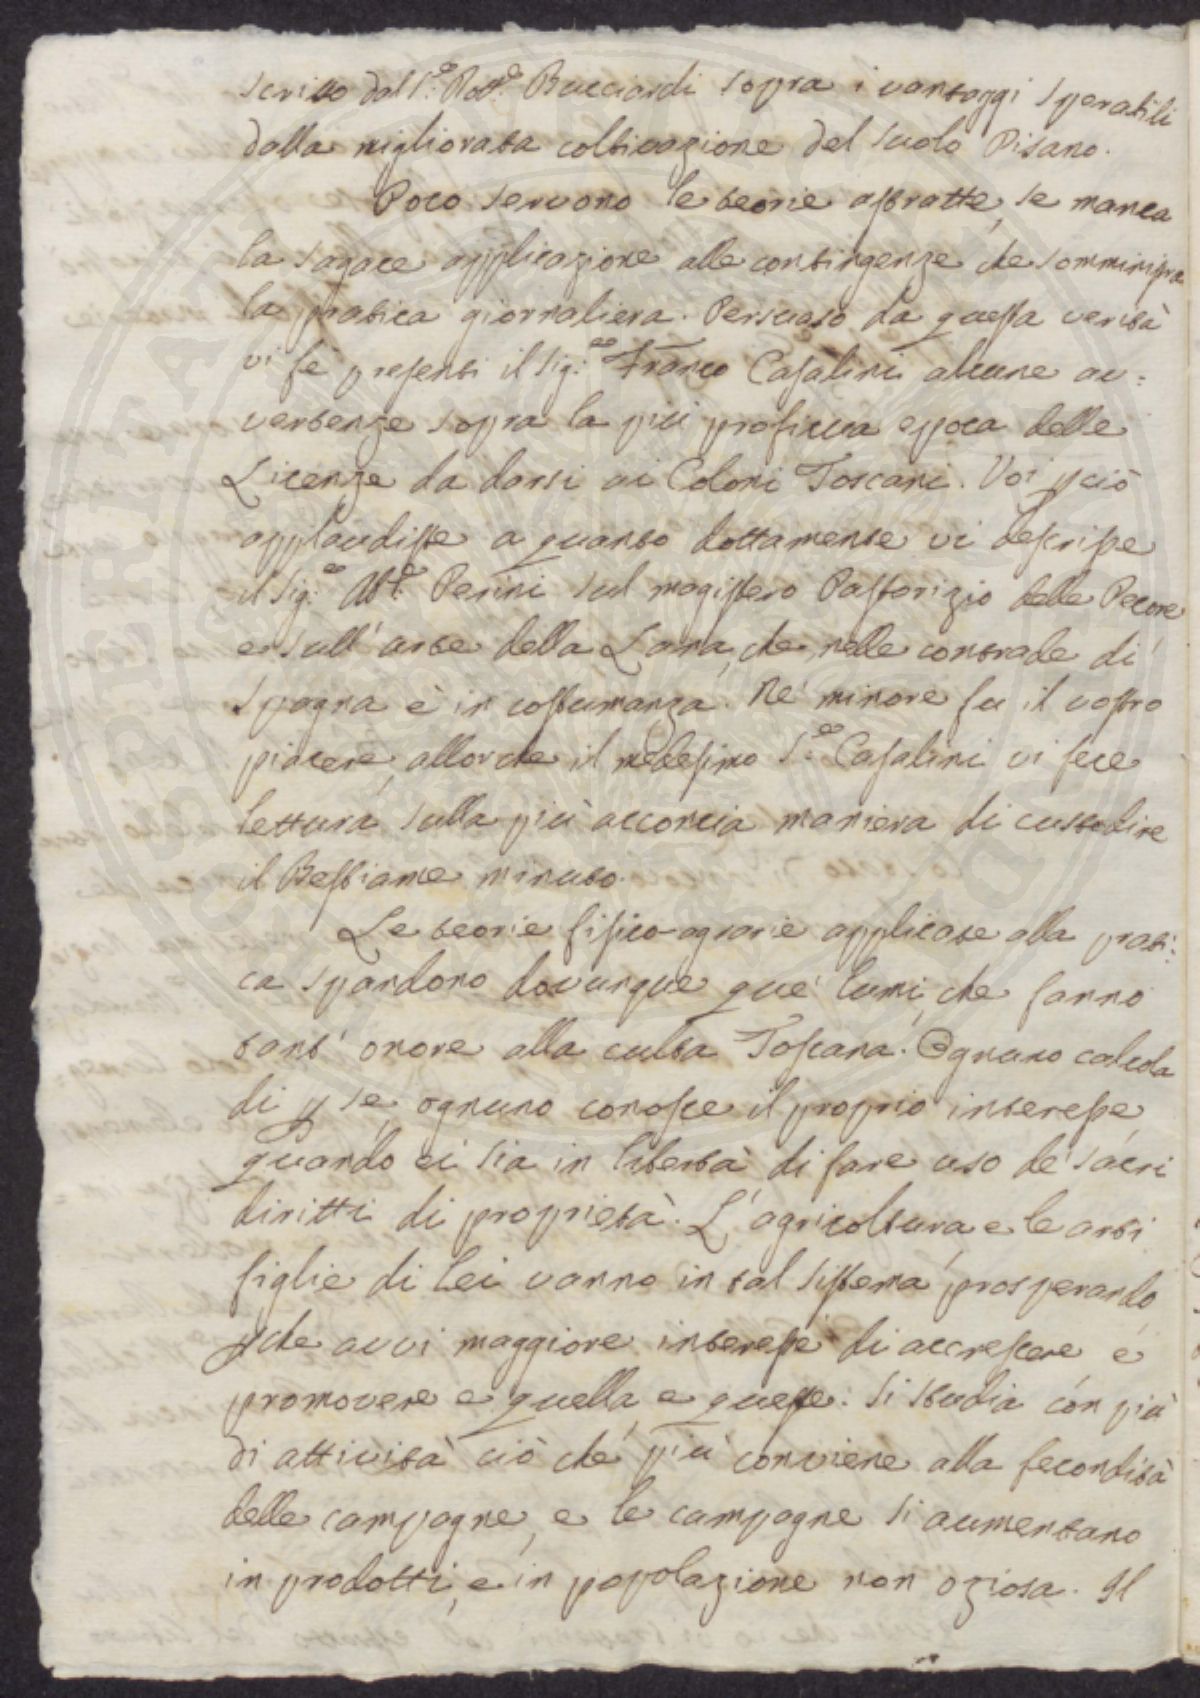 scritto dal S.re Dott.e Bucciardi sopra i vantaggi sperabili
dalla migliorata coltivazione del suolo Pisano.
Poco servono le teorie astratte, se manca
la sagace applicazione alle contingenze, che somministra
la pratica giornaliera. Persuaso da questa verità
vi fè presenti il Sig.re Franco Casalini alcune av=
vertenze sopra la più proficua epoca delle
Licenze da darsi ai Coloni Toscani. Voi p ciò
applaudiste a quanto dottamente vi descrisse
il Sig.re Ab.e Perini sul magistero Pastorizio delle Pecore
e sull'arte della Lana, che nelle contrade di
Spagna è in costumanza. Nè minore fu il vostro
piacere, allorche il medesimo S.re Casalini vi fece
lettura sulla più acconcia maniera di custodire
il Bestiame minuto.
Le teorie fisico-agrarie applicate alla prati=
ca spandono dovunque que' lumi, che fanno
tant' onore alla culta Toscana. Ognuno calcola
di p se, ognuno conosce il proprio interesse,
quando ei sia in libertà di fare uso de' sacri
diritti di proprietà. L'agricoltura e le arti
figlie di lei vanno in tal sistema prosperando,
pche avvi maggiore interesse di accrescere e
promovere e quella, e queste. Si studia con più
di attività ciò che più conviene alla fecondità
delle campagne, e le campagne si aumentano
in prodotti, e in popolazione non oziosa. Il